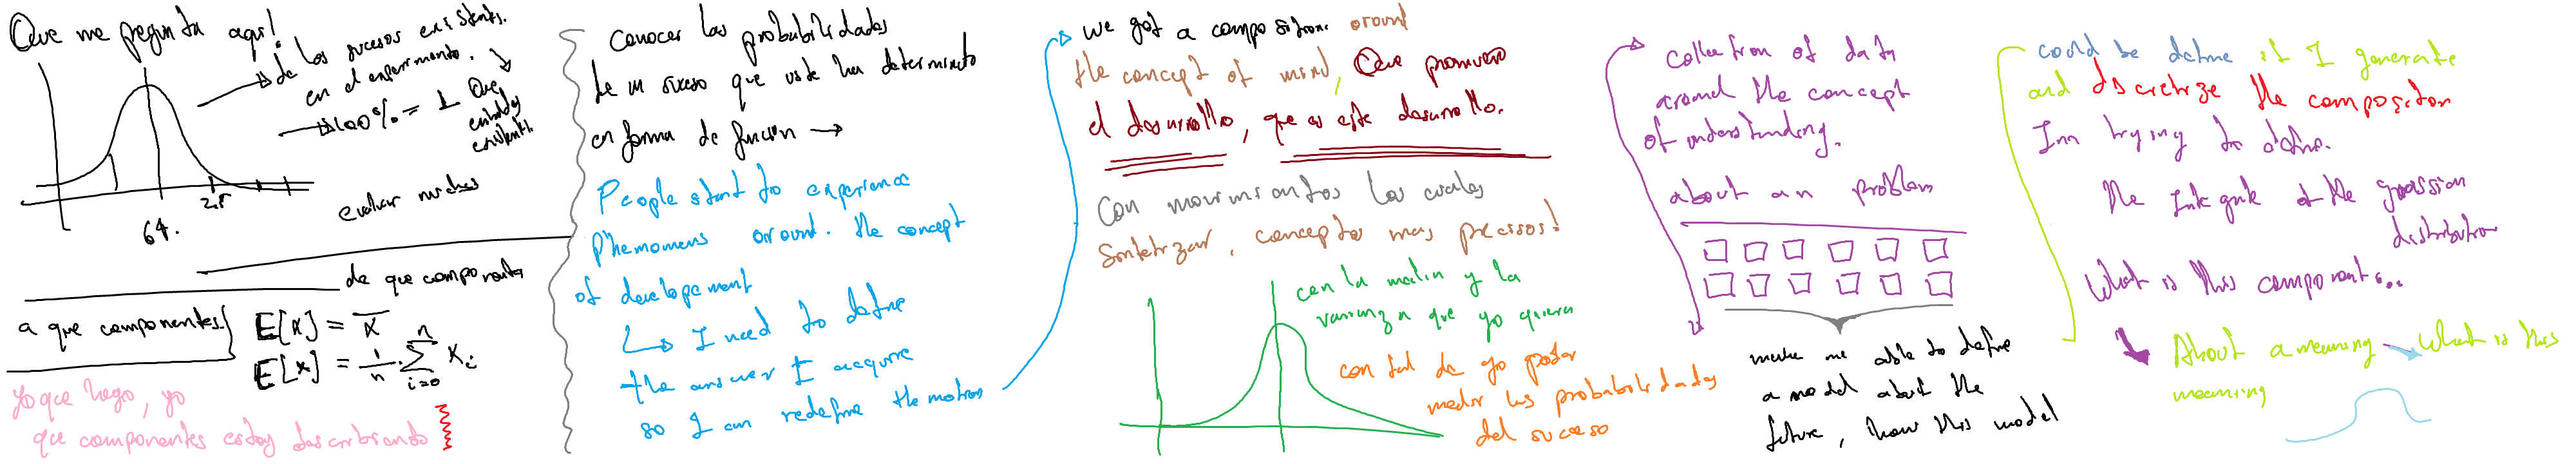 Que me pregunta aqui!
de los sucesos existentes.
en el experimento.
100% = 1 Que
64.
2.5
evaluar muchos
de que componentes
a que componentes
E[x] = x̅
E[x] = 1/n · ∑ i=0 n xi
Yo que hago, yo
que componentes estoy describiendo
Conocer las probabilidades
de un suceso que usted ha determinado
en forma de función →
People start to experience
Phenomens around. the concept
of developement
I need to define
the answer I acquire
so I can redefine the motion
we got a composition around
the concept of mind, Que promueve
el desarrollo, que es este desarrollo.
Con movimientos los cuales
Sintetizar, conceptos mas precisos!
con la media y la
varianza que yo quiera
con tal de yo poder
medir las probabilidades
del suceso
collection of data
around the concept
of understanding.
about an problem
make me able to define
a model about the
future, how this model
could be define if I generate
and discretize the composition
Inn trying to define.
the Integrate of the gaussian
distribution
What is this component...
About a meaning → What is this
meaning